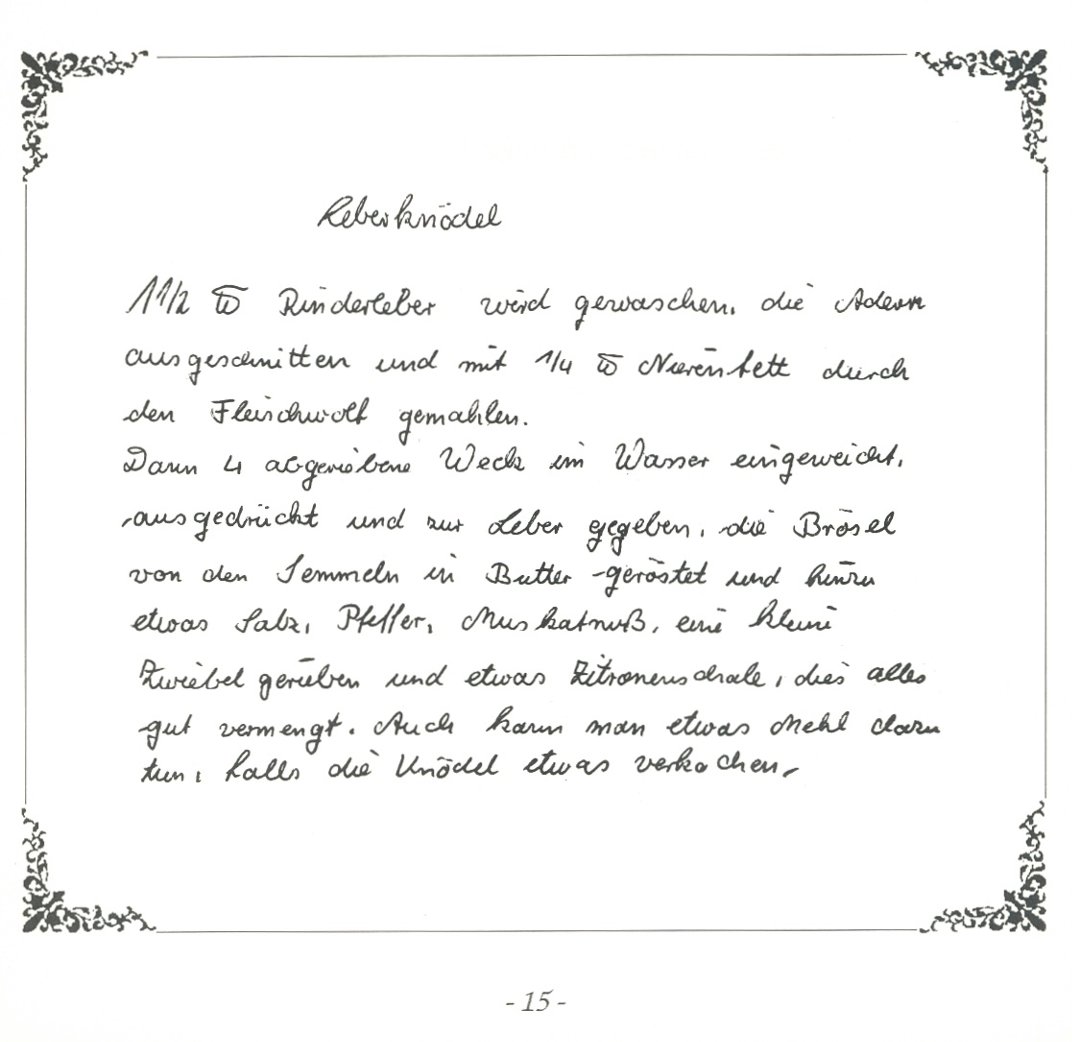 Leberknödel
1 1/2 ℔ Rinderleber wird gewaschen, die Adern
ausgeschnitten und mit 1/4 ℔ Nierenfett durch
den Fleischwolf gemahlen.
Dann 4 abgeriebene Weck im Wasser eingeweicht,
ausgedrückt und zur Leber gegeben, die Brösel
von den Semmeln in Butter geröstet und hinzu
etwas Salz, Pfeffer, Muskatnuß, eine kleine
Zwiebel gerieben und etwas Zitronenschale, dies alles
gut vermengt. Auch kann man etwas Mehl dazu
tun, falls die Knödel etwas verkochen.
- 15 -